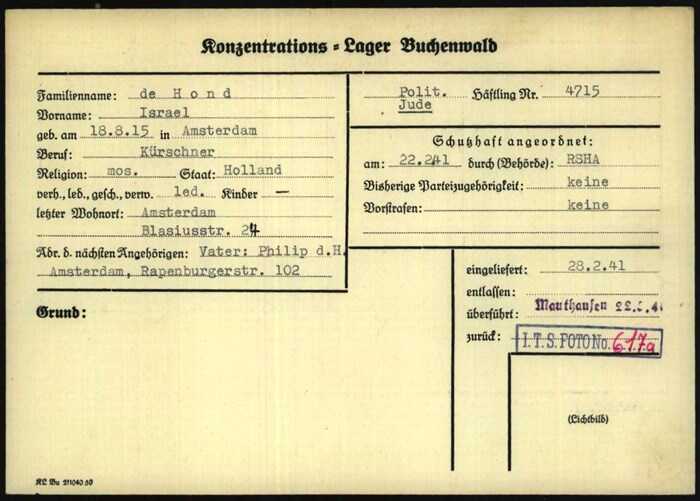 Konzentrations-Lager Buchenwald
Familienname: de Hond
Vorname: Israel
geb. am 18.8.15 in Amsterdam
Beruf: Kürschner
Religion: mos. Staat: Holland
verh., led., gesch., verw. led. Kinder —
letzter Wohnort: Amsterdam
Blasiusstr. 24
Adr. d. nächsten Angehörigen: Vater: Philip d.H.
Amsterdam, Rapenburgerstr. 102
Grund:
Polit. Häftling Nr. 4715
Jude
Schutzhaft angeordnet:
am: 22.241 durch (Behörde): RSHA
Bisherige Parteizugehörigkeit: keine
Vorstrafen: keine
eingeliefert: 28.2.41
entlassen:
überführt: Mauthausen
zurück: I.T.S. FOTO No. 617a
(Lichtbild)
KL Bu